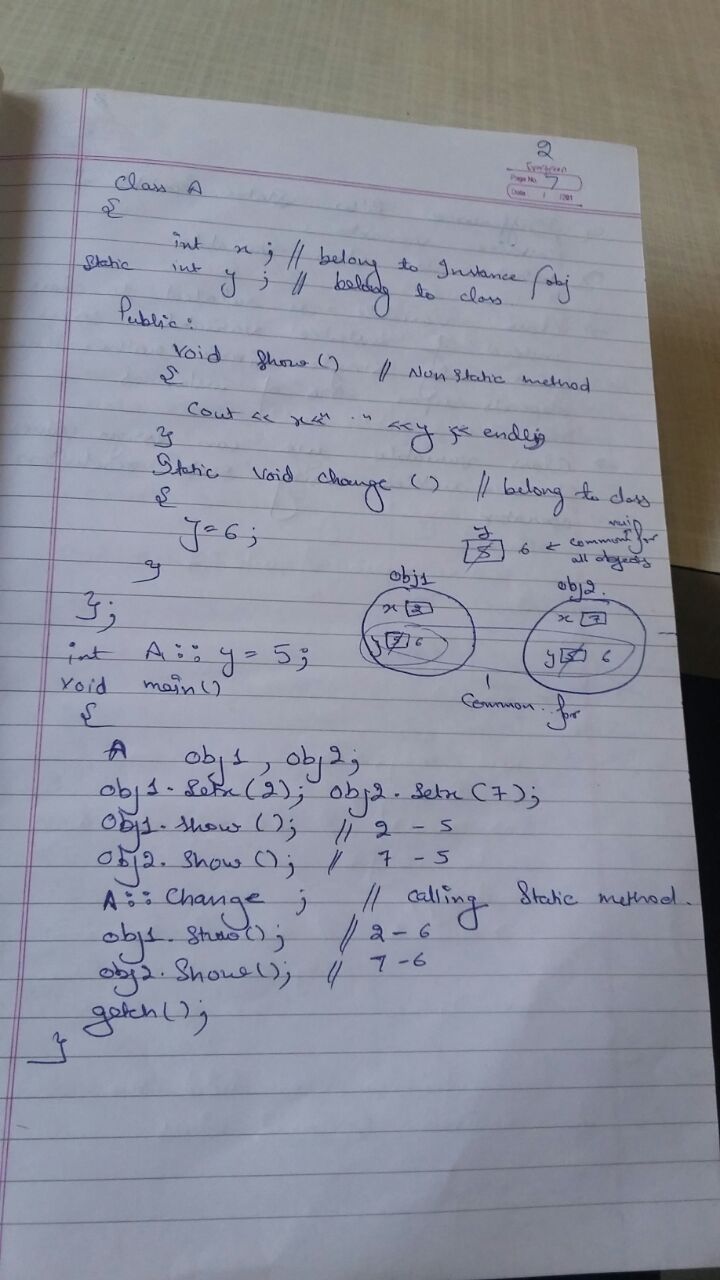 2
Evergreen
Page No. 7
Date: / /201
class A
{
int x ; // belong to Instance/obj
static int y ; // belong to class
Public:
void show() // Non static method
{
cout << x<<" . " <<y << endl;
}
Static void change () // belong to class
{
y=6;
}
};
y
5 6 ← common for
all objects
obj1
x 2
y 5 6
obj2.
x 7
y 5 6
Common for
int A::y = 5;
void main()
{
A obj1, obj2;
obj1.Setx(2); obj2.Setx(7);
obj1.show(); // 2 - 5
obj2.show(); // 7 - 5
A::Change ; // calling Static method.
obj1.Show(); // 2 - 6
obj2.Show(); // 7 - 6
getch();
}